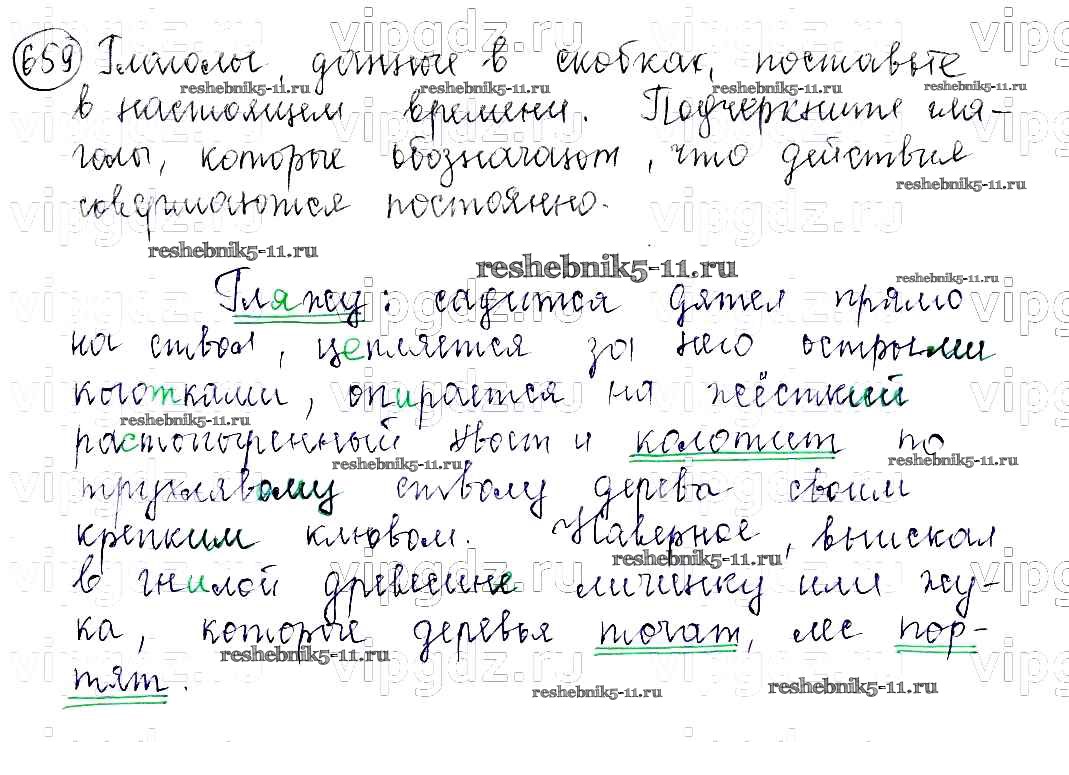 659 Глаголы, данные в скобках, поставьте
в настоящем времени. Подчеркните гла-
голы, которые обозначают, что действия
совершаются постоянно.
reshebnik5-11.ru
Гляжу: садится дятел прямо
на ствол, цепляется за него острыми
коготками, опирается на жёсткий
растопыренный хвост и колотит по
трухлявому стволу дерева своим
крепким клювом. Наверное, выискал
в гнилой древесине личинку или жу-
ка, которые деревья точат, лес пор-
тят.